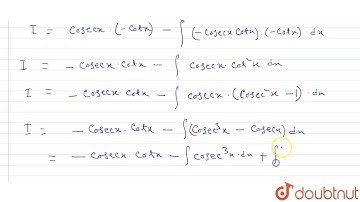 I = cosecx·(-cotx) - ∫(-cosecx cotx)·(-cotx)·dx
I = -cosecx·cotx - ∫ cosecx·cot²x·dx
I = -cosecx·cotx - ∫ cosecx·(cosec²x -1)·dx
I = -cosecx·cotx - ∫(cosec³x - cosecx) dx
= -cosecx·cotx - ∫cosec³x·dx + ∫
doubtnut